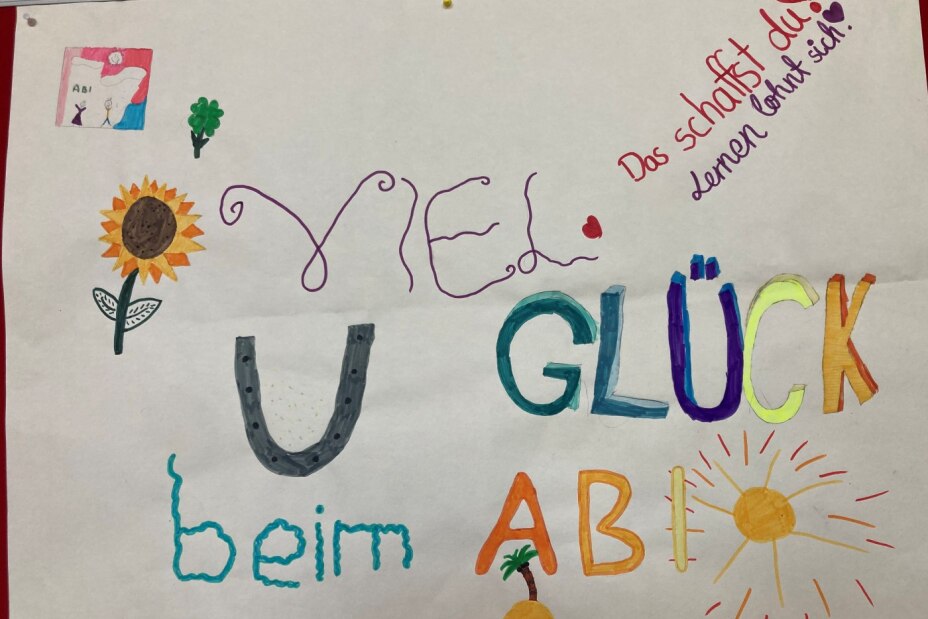 ABI
Das schaffst du!
Lernen lohnt sich!
VIEL
GLÜCK
beim ABI